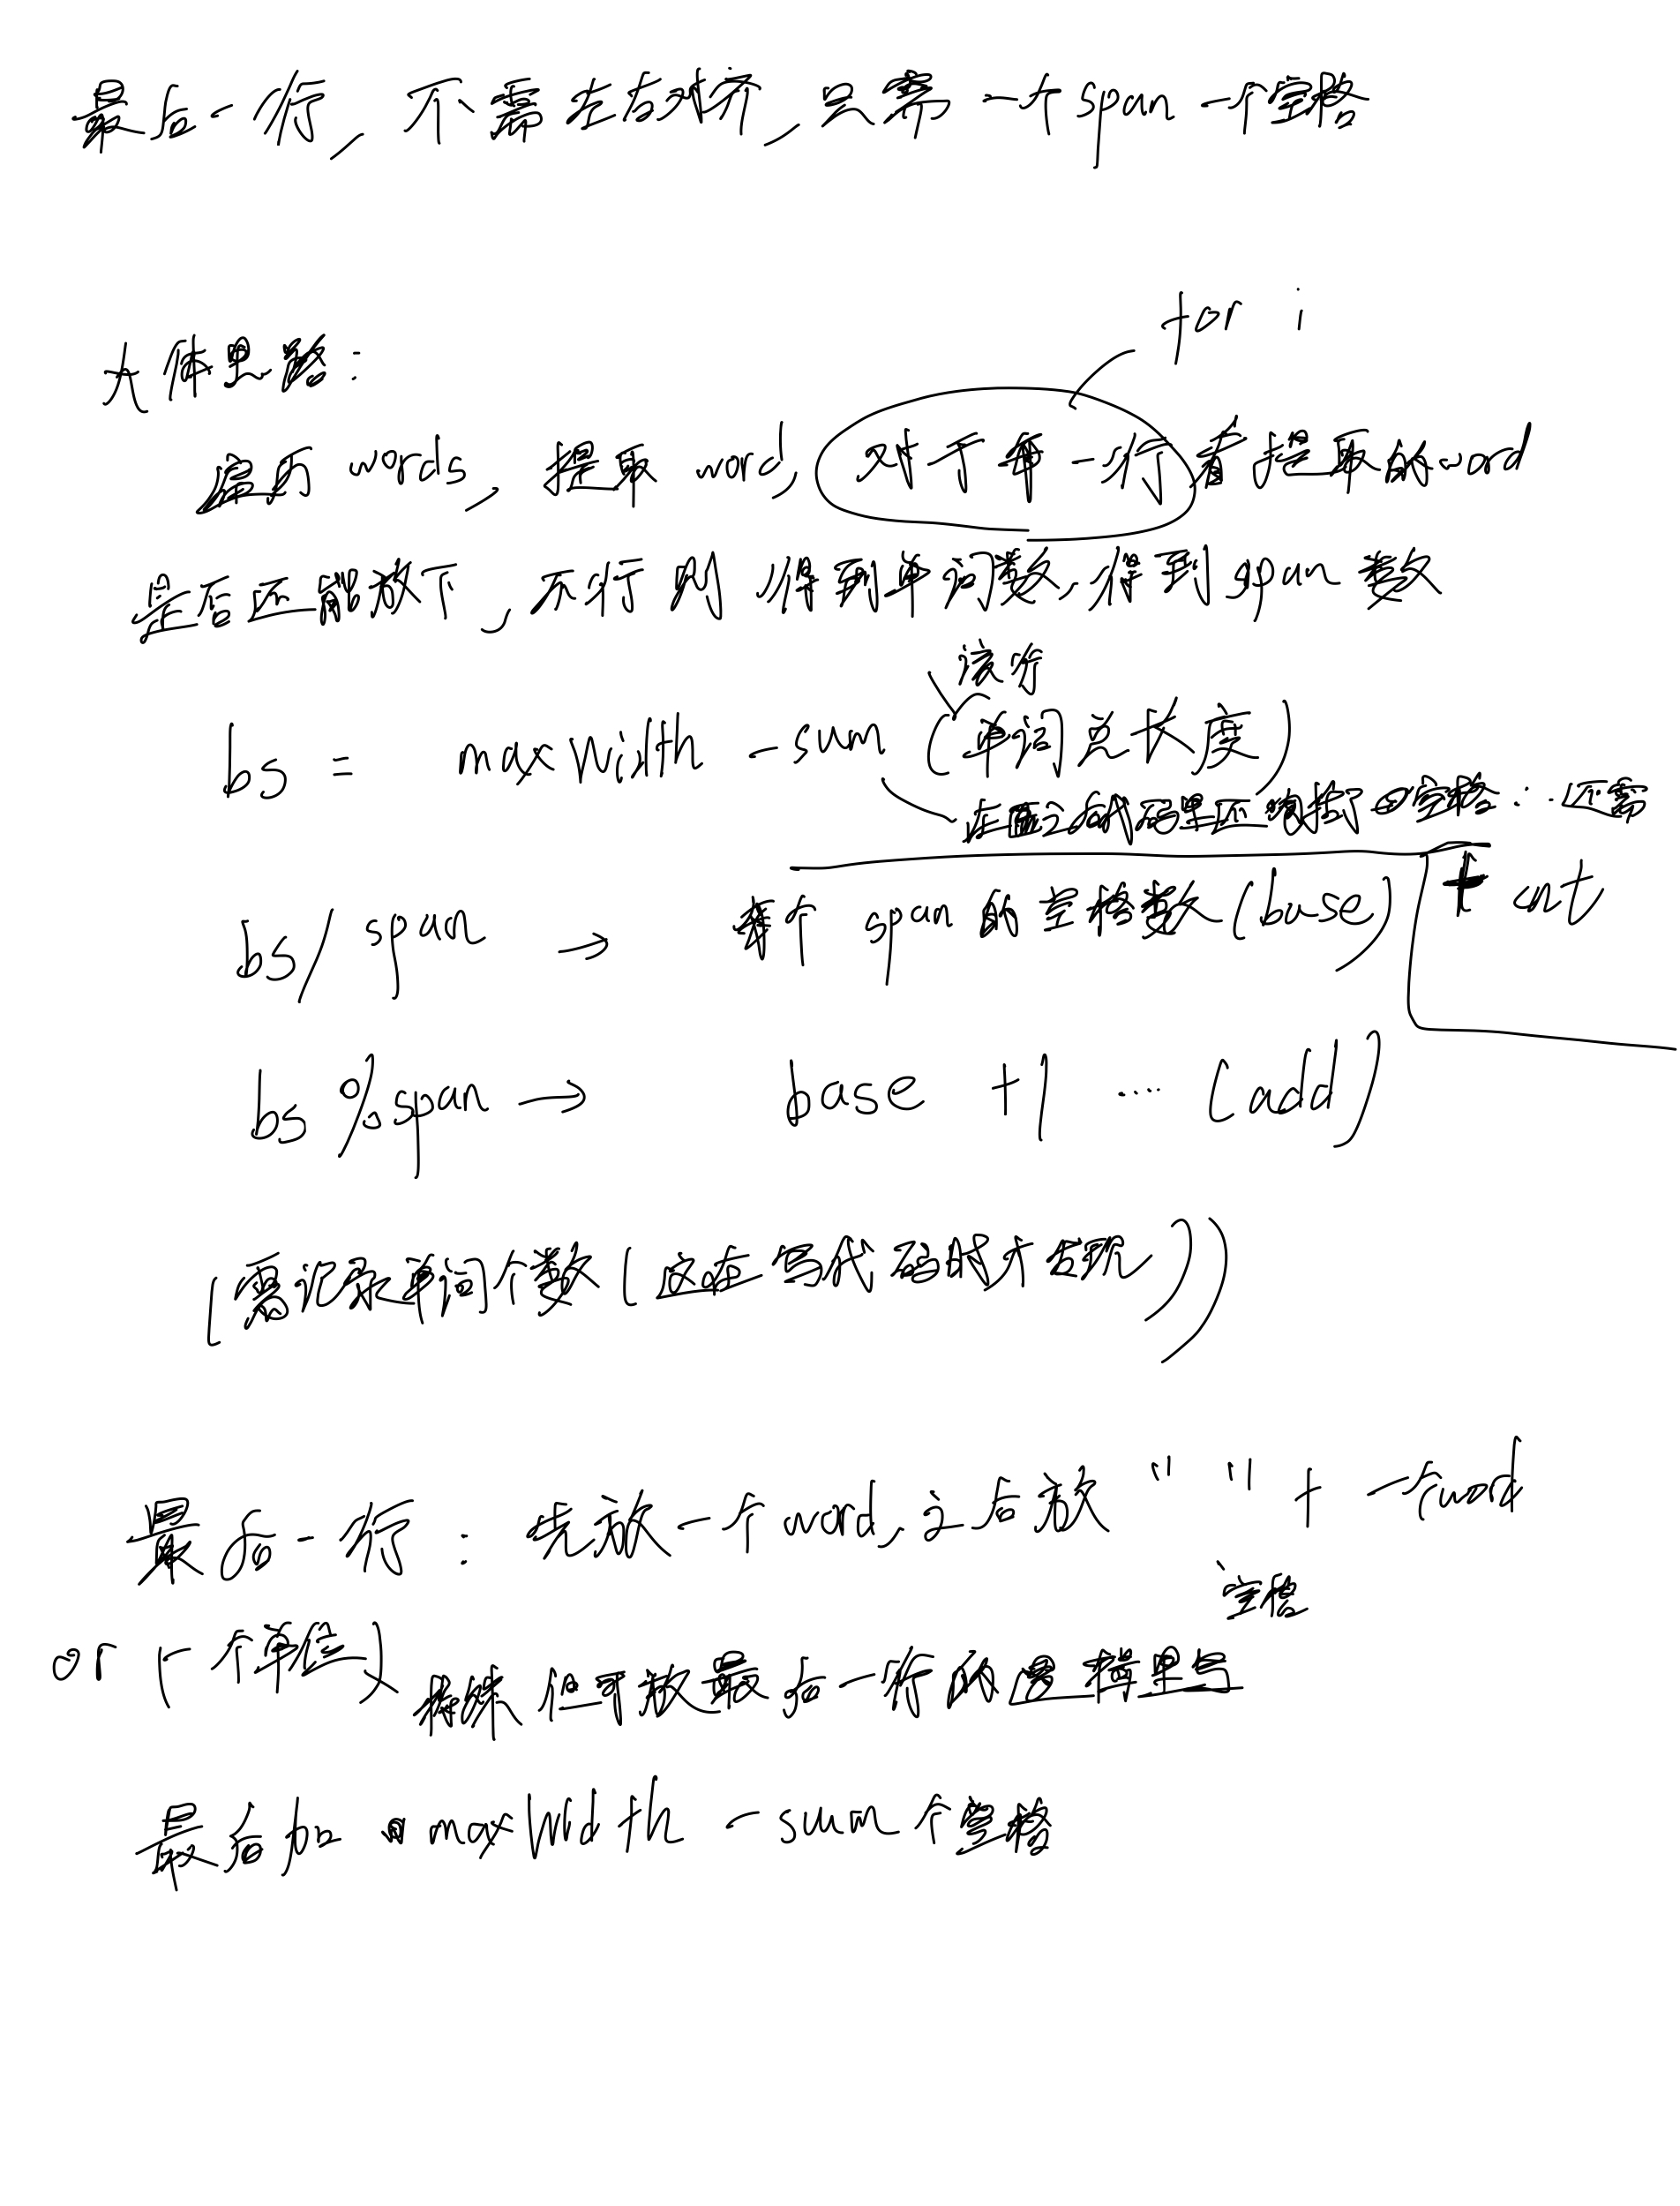 最后一行, 不需左右对齐, 只需一个span一个空格
for i
大体思路:
遍历 words, 提取 word, 对于每一行看提取的word
之后还能放下, 不行则 得到单词数, 得到 span 数
该行
bs = maxWidth - sum (单词总长度)
在之后代码里还包括了空格 ∴ 还需
+ cnt
bs/span → 每个 span 的空格数 (base)
bs % span → base +1 .... (add)
(需记录单词个数 (这在写代码时才发现))
最后一行: 先放一个word, 之后放 " " + 一个word
空格
or (一个单位) 特殊 但可放最后一行的逻辑里写
最后加 maxWidth - sum 个空格